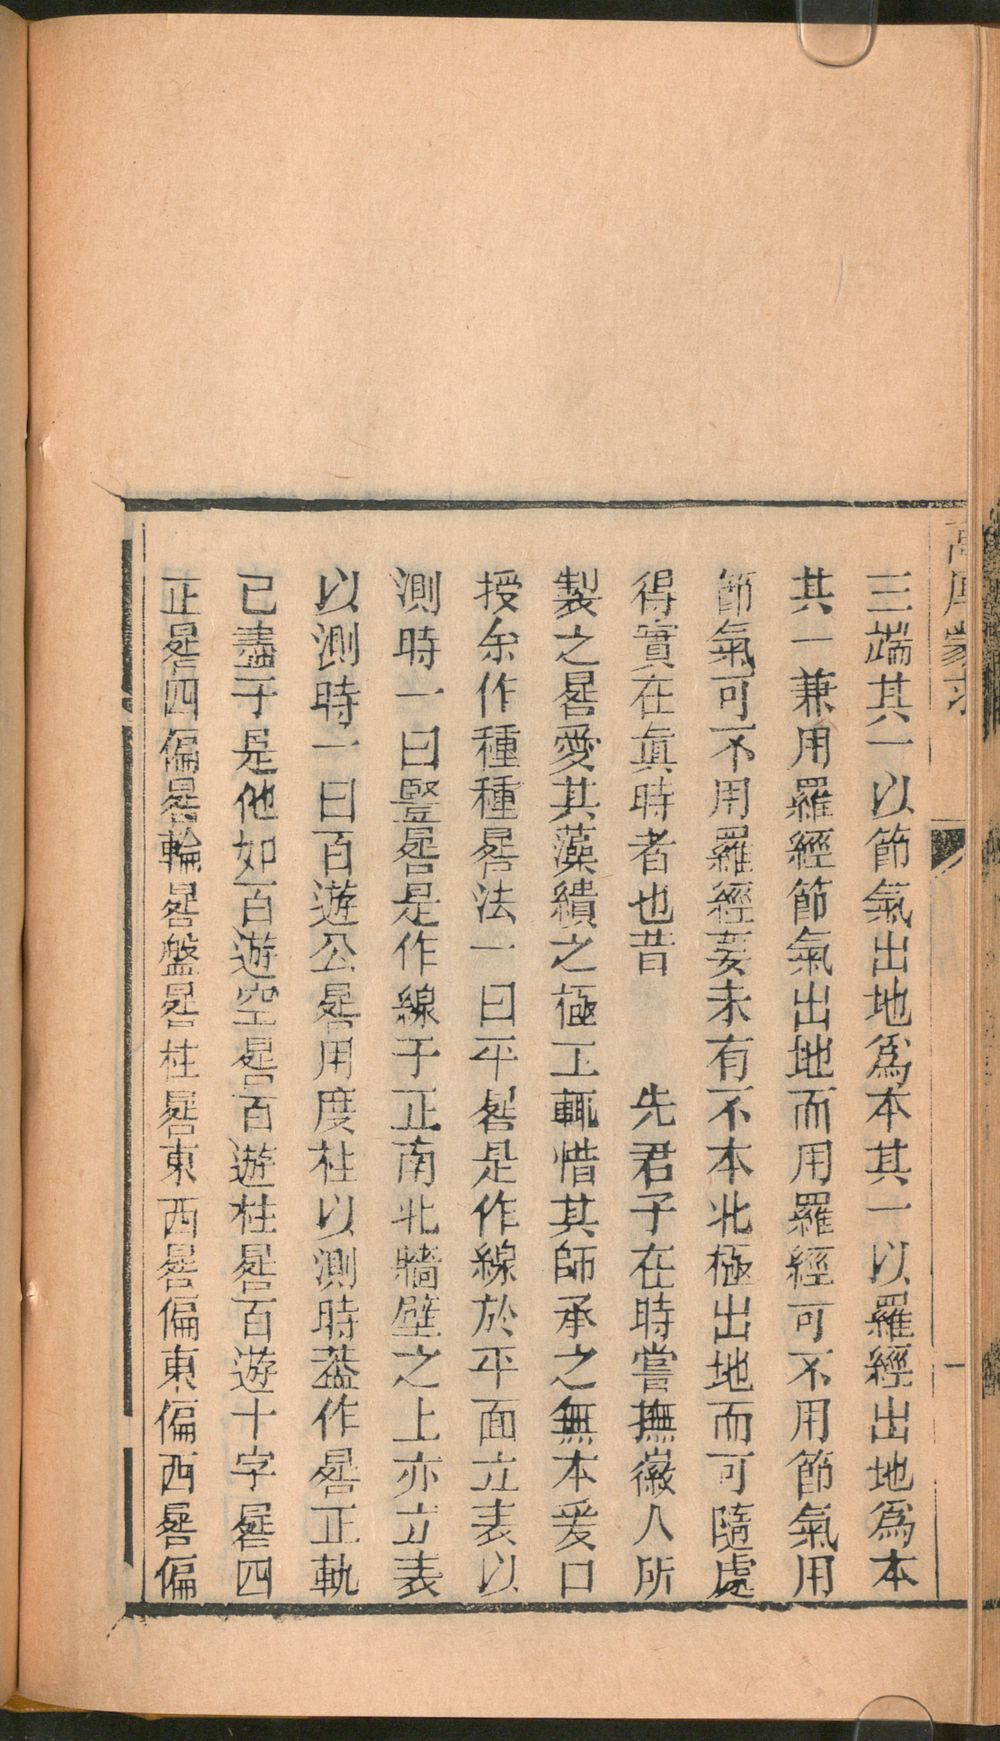 高厚蒙求
一
三端其一以節氣出地爲本其一以羅經出地爲本
其一兼用羅經節氣出地而用羅經可不用節氣用
節氣可不用羅經要未有不本北極出地而可隨處
得實在眞時者也昔　先君子在時嘗撫徽人所
製之晷愛其藻繢之極工輒惜其師承之無本爰口
授余作種種晷法一曰平晷是作線於平面立表以
測時一曰豎晷是作線于正南北牆壁之上亦立表
以測時一曰百遊公晷用度柱以測時葢作晷正軌
已盡于是他如百遊空晷百遊柱晷百遊十字晷四
正晷四偏晷輪晷盤晷柱晷東西晷偏東偏西晷偏